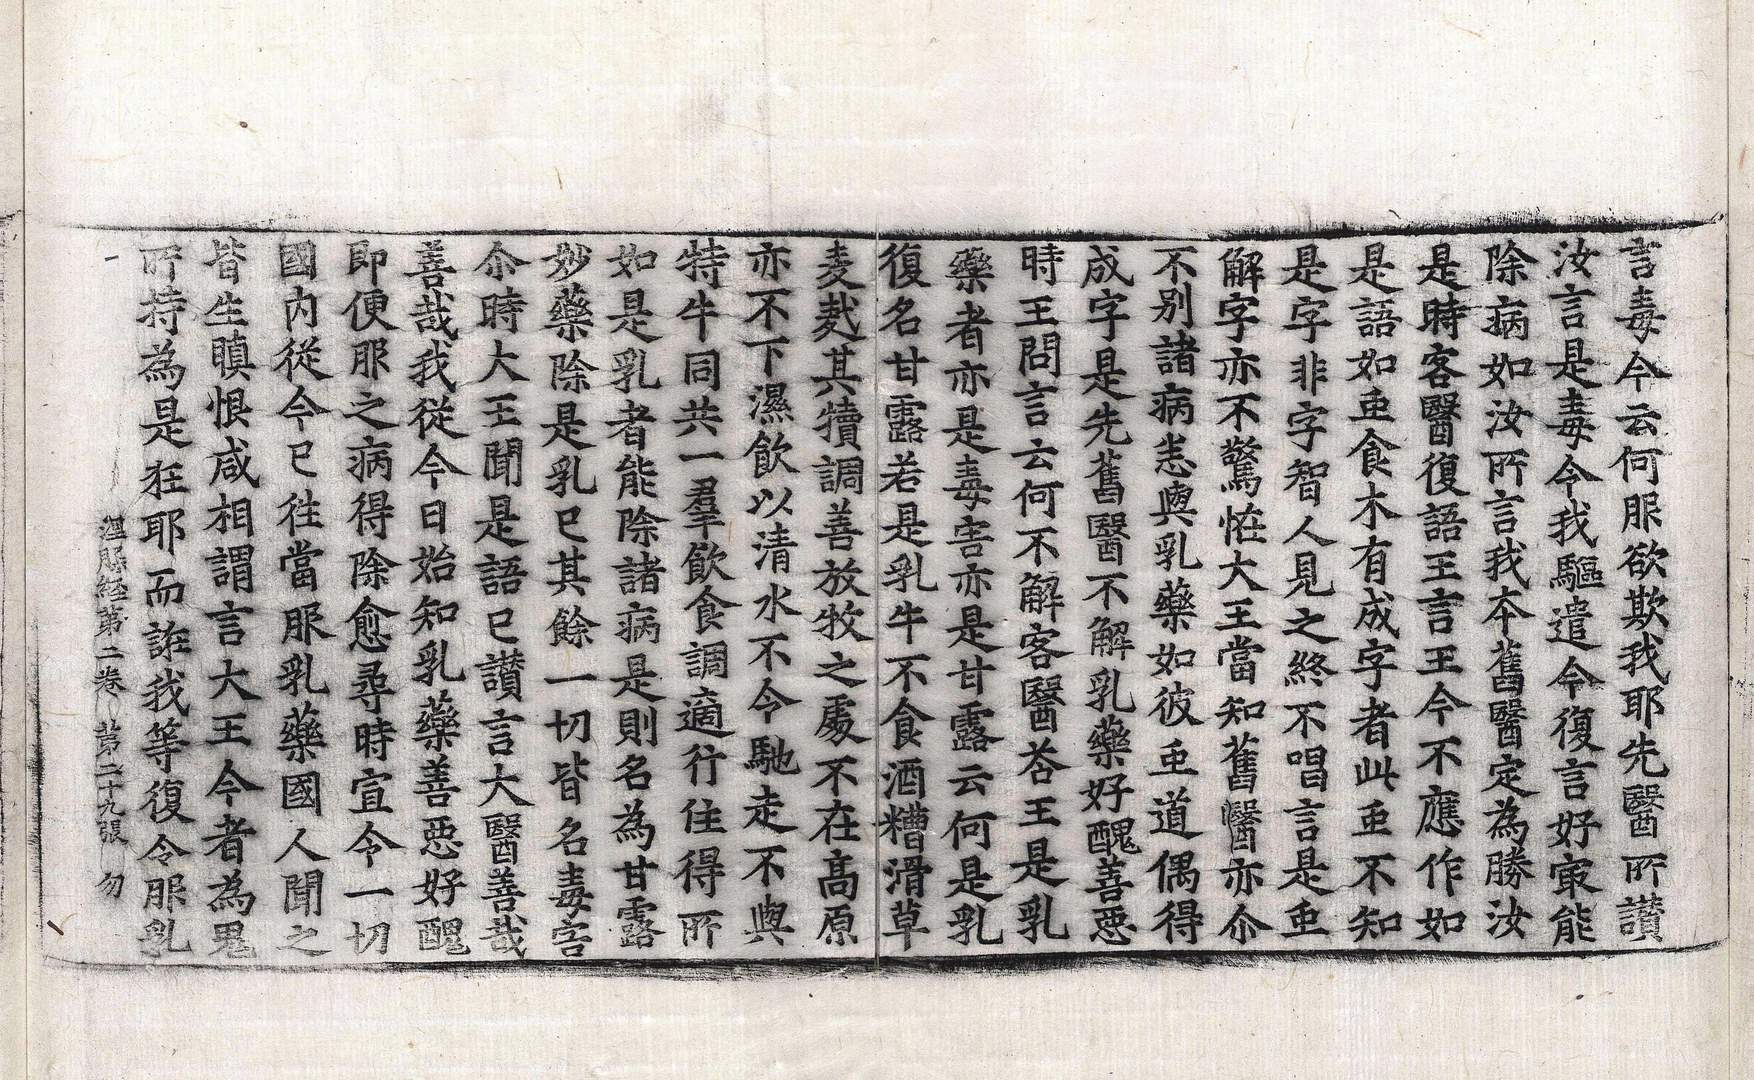 言毒今云何服欲欺我耶先醫所讃
汝言是毒令我驅遣今復言好㝡能
除病如汝所言我夲舊醫定為勝汝
是時客醫復語王言王今不應作如
是語如䖝食木有成字者此䖝不知
是字非字智人見之終不唱言是䖝
解字亦不驚恠大王當知舊醫亦尒
不別諸病悉與乳藥如彼䖝道偶得
成字是先舊醫不解乳藥好醜善惡
時王問言云何不解客醫荅王是乳
藥者亦是毒害亦是甘露云何是乳
復名甘露若是乳牛不食酒糟滑草
麦𪍿其犢調善放牧之處不在高原
亦不下濕飲以清水不令馳走不與
特牛同共一羣飲食調適行住得所
如是乳者能除諸病是則名為甘露
妙藥除是乳已其餘一切皆名毒害
尒時大王聞是語已讃言大醫善哉
善哉我從今日始知乳藥善惡好醜
即便服之病得除愈尋時宣令一切
國內從今已往當服乳藥國人聞之
皆生瞋恨咸相謂言大王今者為鬼
所持為是狂耶而誑我等復令服乳
涅槃経第二卷 第二十九張 勿